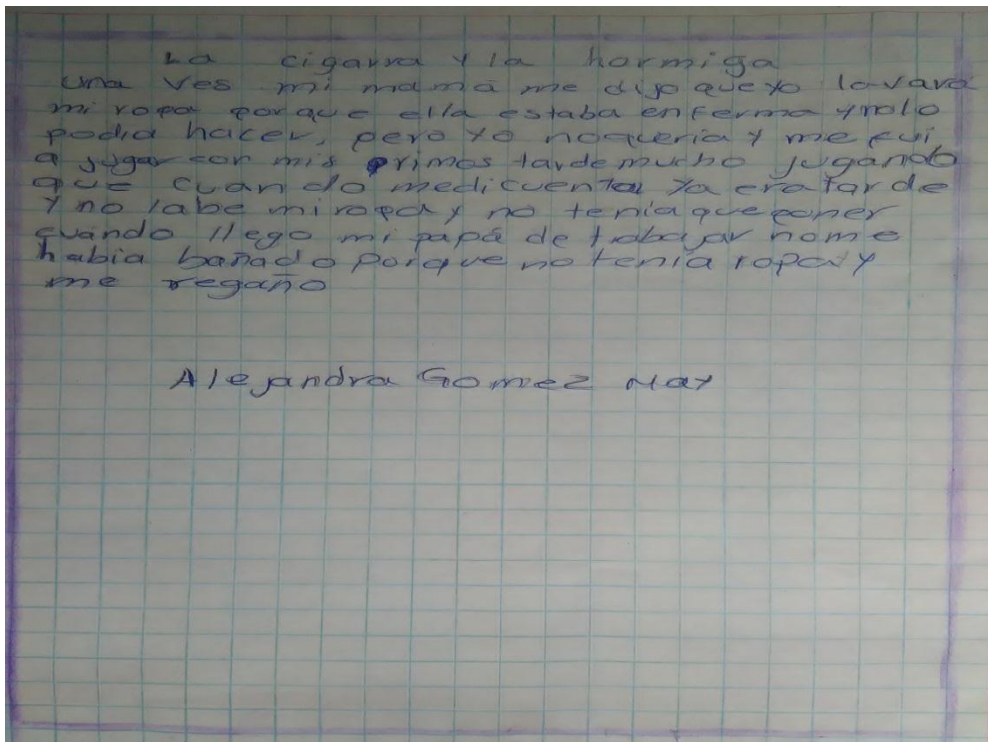 La cigarra y la hormiga
una ves mi mamá me dijo que yo lavara
mi ropa porque ella estaba enferma y no lo
podia hacer, pero yo no queria y me fui
a jugar con mis primos tarde mucho jugando
que cuando me di cuenta ya era tarde
y no labe mi ropa y no tenía que poner
cuándo llego mi papá de trabajar no me
había bañado porque no tenía ropa y
me regaño
Alejandra Gomez Nay